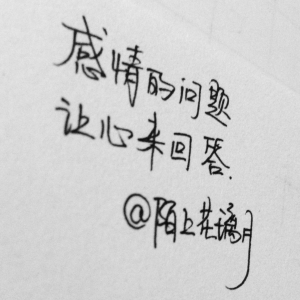 感情的问题
让心来回答.
@陌上花璃月